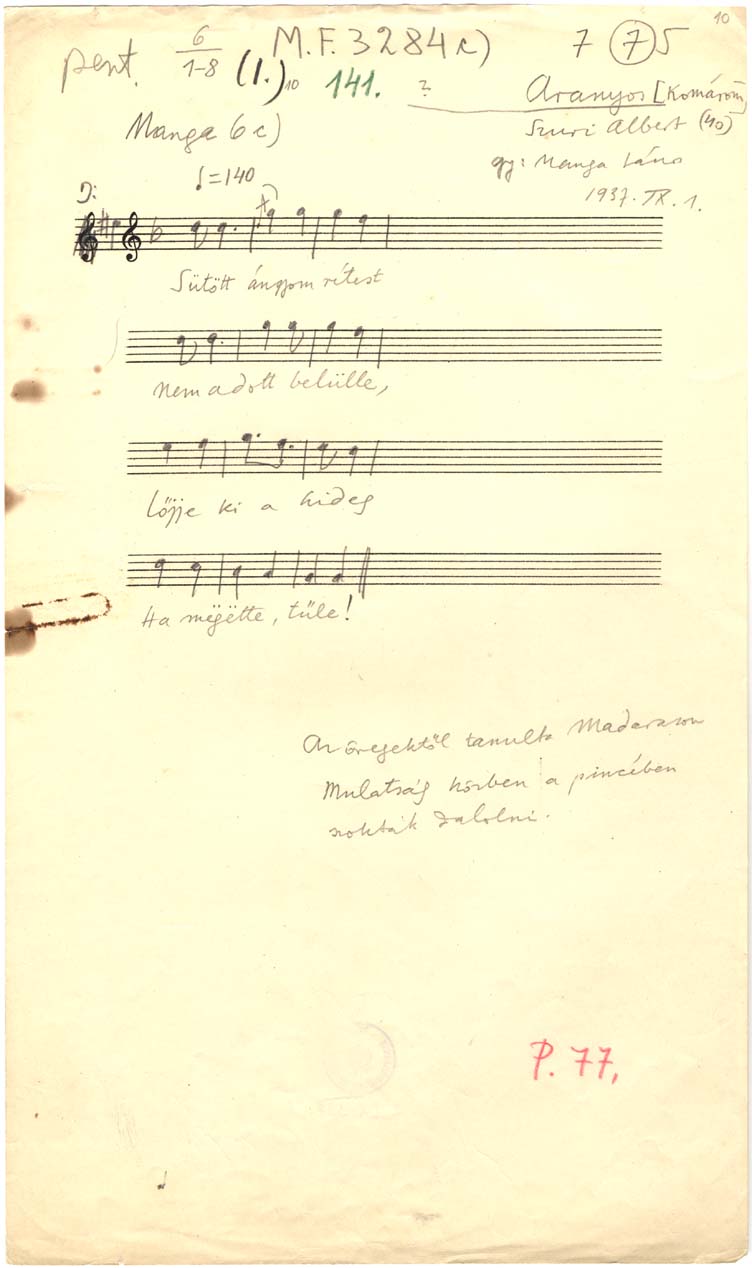 10
pent. 6/1-8 (I.) 10 M.F. 3284 c) 7 (7) 5
141. ? Aranyos [Komárom]
Manga 6 c) Szuri Albert (40)
gy: Manga János
♩=140 1937. IX. 1.
Sütött ángyom rétest
nem adott belülle,
Lőjje ki a hideg
Ha mëgëtte, tűle!
Az öregektől tanulta Madarason
Mulatság közben a pincében
szokták dalolni.
P. 77,